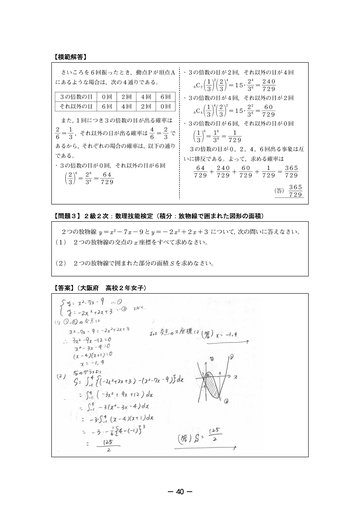 【模範解答】
さいころを6回振ったとき,動点Pが頂点A
にあるような場合は,次の4通りである。
3の倍数の目 0回 2回 4回 6回
それ以外の目 6回 4回 2回 0回
また,1回につき3の倍数の目が出る確率は
2/6=1/3,それ以外の目が出る確率は4/6=2/3で
あるから,それぞれの場合の確率は,以下の通り
である。
・3の倍数の目が0回,それ以外の目が6回
(2/3)^6=2^6/3^6=64/729
・3の倍数の目が2回,それ以外の目が4回
₆C₂(1/3)^2(2/3)^4=15・2^4/3^6=240/729
・3の倍数の目が4回,それ以外の目が2回
₆C₄(1/3)^4(2/3)^2=15・2^2/3^6=60/729
・3の倍数の目が6回,それ以外の目が0回
(1/3)^6=1^6/3^6=1/729
3の倍数の目が0,2,4,6回出る事象は互
いに排反である。よって,求める確率は
64/729+240/729+60/729+1/729=365/729
(答) 365/729
【問題3】2級2次:数理技能検定(積分:放物線で囲まれた図形の面積)
2つの放物線 y=x²-7x-9とy=-2x²+2x+3 について,次の問いに答えなさい。
(1) 2つの放物線の交点のx座標をすべて求めなさい。
(2) 2つの放物線で囲まれた部分の面積Sを求めなさい。
【答案】(大阪府 高校2年女子)
y=x²-7x-9 …①
y=-2x²+2x+3 …②
x²-7x-9=-2x²+2x+3
3x²-9x-12=0
x²-3x-4=0
(x-4)(x+1)=0
x=-1,4
(答) x=-1,4
(2)
S=∫₋₁⁴{(-2x²+2x+3)-(x²-7x-9)}dx
=∫₋₁⁴(-3x²+9x+12)dx
=∫₋₁⁴-3(x²-3x-4)dx
=-3∫₋₁⁴(x-4)(x+1)dx
=-3・-1/6{4-(-1)}³
=125/2
(答) S=125/2
- 40 -